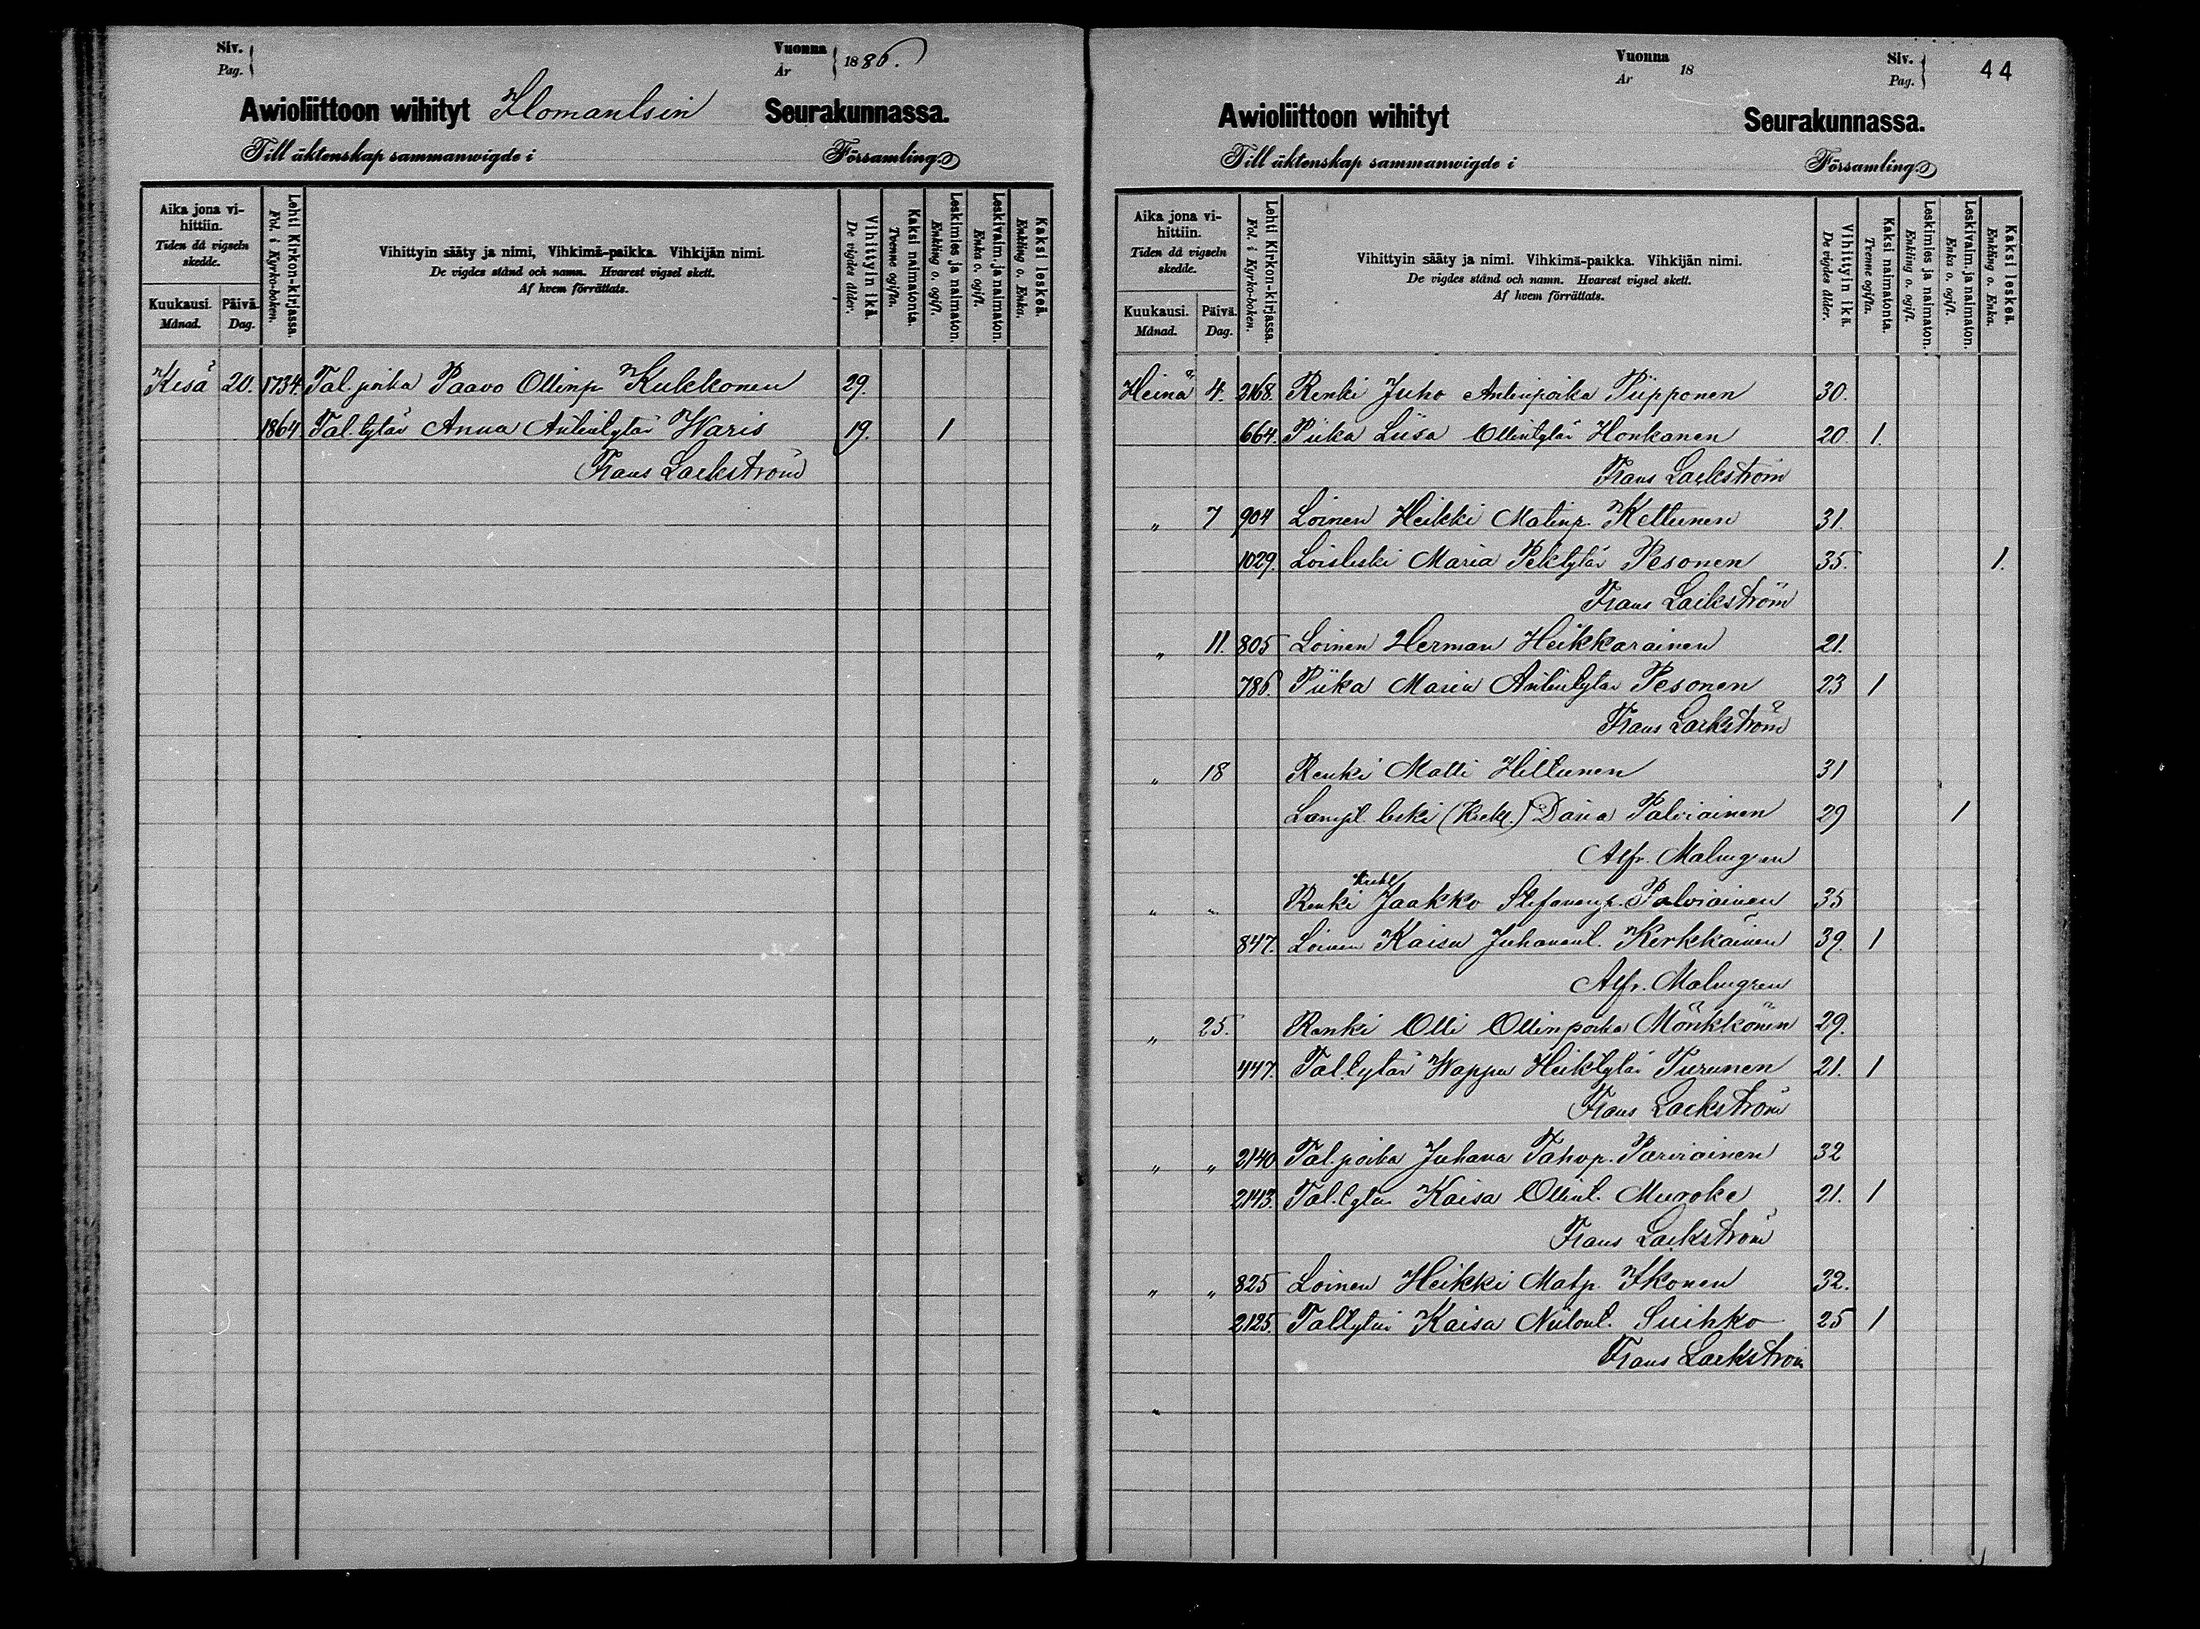 Siv.
Pag.
Vuonna
År
1886.
Awioliittoon wihityt Ilomantsin Seurakunnassa.
Till äktenskap sammanwigde i Församling.
Aika jona vi-
hittiin.
Tiden då vigseln
skedde.
Kuukausi.
Månad.
Päivä.
Dag.
Lehti Kirkon-kirjassa.
Fol. i Kyrko-boken.
Vihittyin sääty ja nimi, Vihkimä-paikka. Vihkijän nimi.
De vigdes stånd och namn. Hvarest vigsel skett.
Af hvem förrättats.
Vihittyin ikä.
De vigdes ålder.
Kaksi naimatonta.
Tvenne ogifta.
Leskimies ja naimaton.
Enkling o. ogift.
Leskivaim. ja naimaton.
Enka o. ogift.
Kaksi leskeä.
Enkling o. Enka.
Kesä 20. 1734. Tal. poika Paavo Ollinp Kukkonen 29.
1864 Tal. tytär Anna Antintytär Waris 19. 1
Frans Lackström
Vuonna
År
18
Siv.
Pag.
44
Awioliittoon wihityt Seurakunnassa.
Till äktenskap sammanwigde i Församling.
Aika jona vi-
hittiin.
Tiden då vigseln
skedde.
Kuukausi.
Månad.
Päivä.
Dag.
Lehti Kirkon-kirjassa.
Fol. i Kyrko-boken.
Vihittyin sääty ja nimi. Vihkimä-paikka. Vihkijän nimi.
De vigdes stånd och namn. Hvarest vigsel skett.
Af hvem förrättats.
Vihittyin ikä.
De vigdes ålder.
Kaksi naimatonta.
Tvenne ogifta.
Leskimies ja naimaton.
Enkling o. ogift.
Leskivaim. ja naimaton.
Enka o. ogift.
Kaksi leskeä.
Enkling o. Enka.
Heinä 4. 2168. Renki Juho Antinpoika Piipponen 30.
664. Piika Liisa Ollintytär Honkanen 20. 1.
Frans Lackström
„ 7 904 Loinen Heikki Matinp. Kettunen 31.
1029. Loisleski Maria Pektytär Pesonen 35. 1.
Frans Lackström
„ 11. 805 Loinen Herman Heikkarainen 21.
786. Piika Maria Antintytär Pesonen 23 1
Frans Lackström
„ 18 Renki Matti Hiltunen 31
Lampt. leski Daria Palviainen 29 1
Alfr. Malmgren
„ „ Renki Jaakko Stefaninp. Palviainen 35
847. Loinen Kaisa Juhanant. Kerkkäinen 39. 1
Alfr. Malmgren
„ 25. Renki Olli Ollinpoika Mönkkönen 29.
447. Tal.tytär Wappu Heiktytär Turunen 21. 1
Frans Lackström
„ „ 2140 Tal. poika Juhana Tahvp. Parviainen 32
2143. Tal. tytär Kaisa Ollint. Muroke 21. 1
Frans Lackström
„ „ 825 Loinen Heikki Matp. Ikonen 32.
2125. Taltytär Kaisa Niilont. Suihko 25 1
Frans Lackström
„